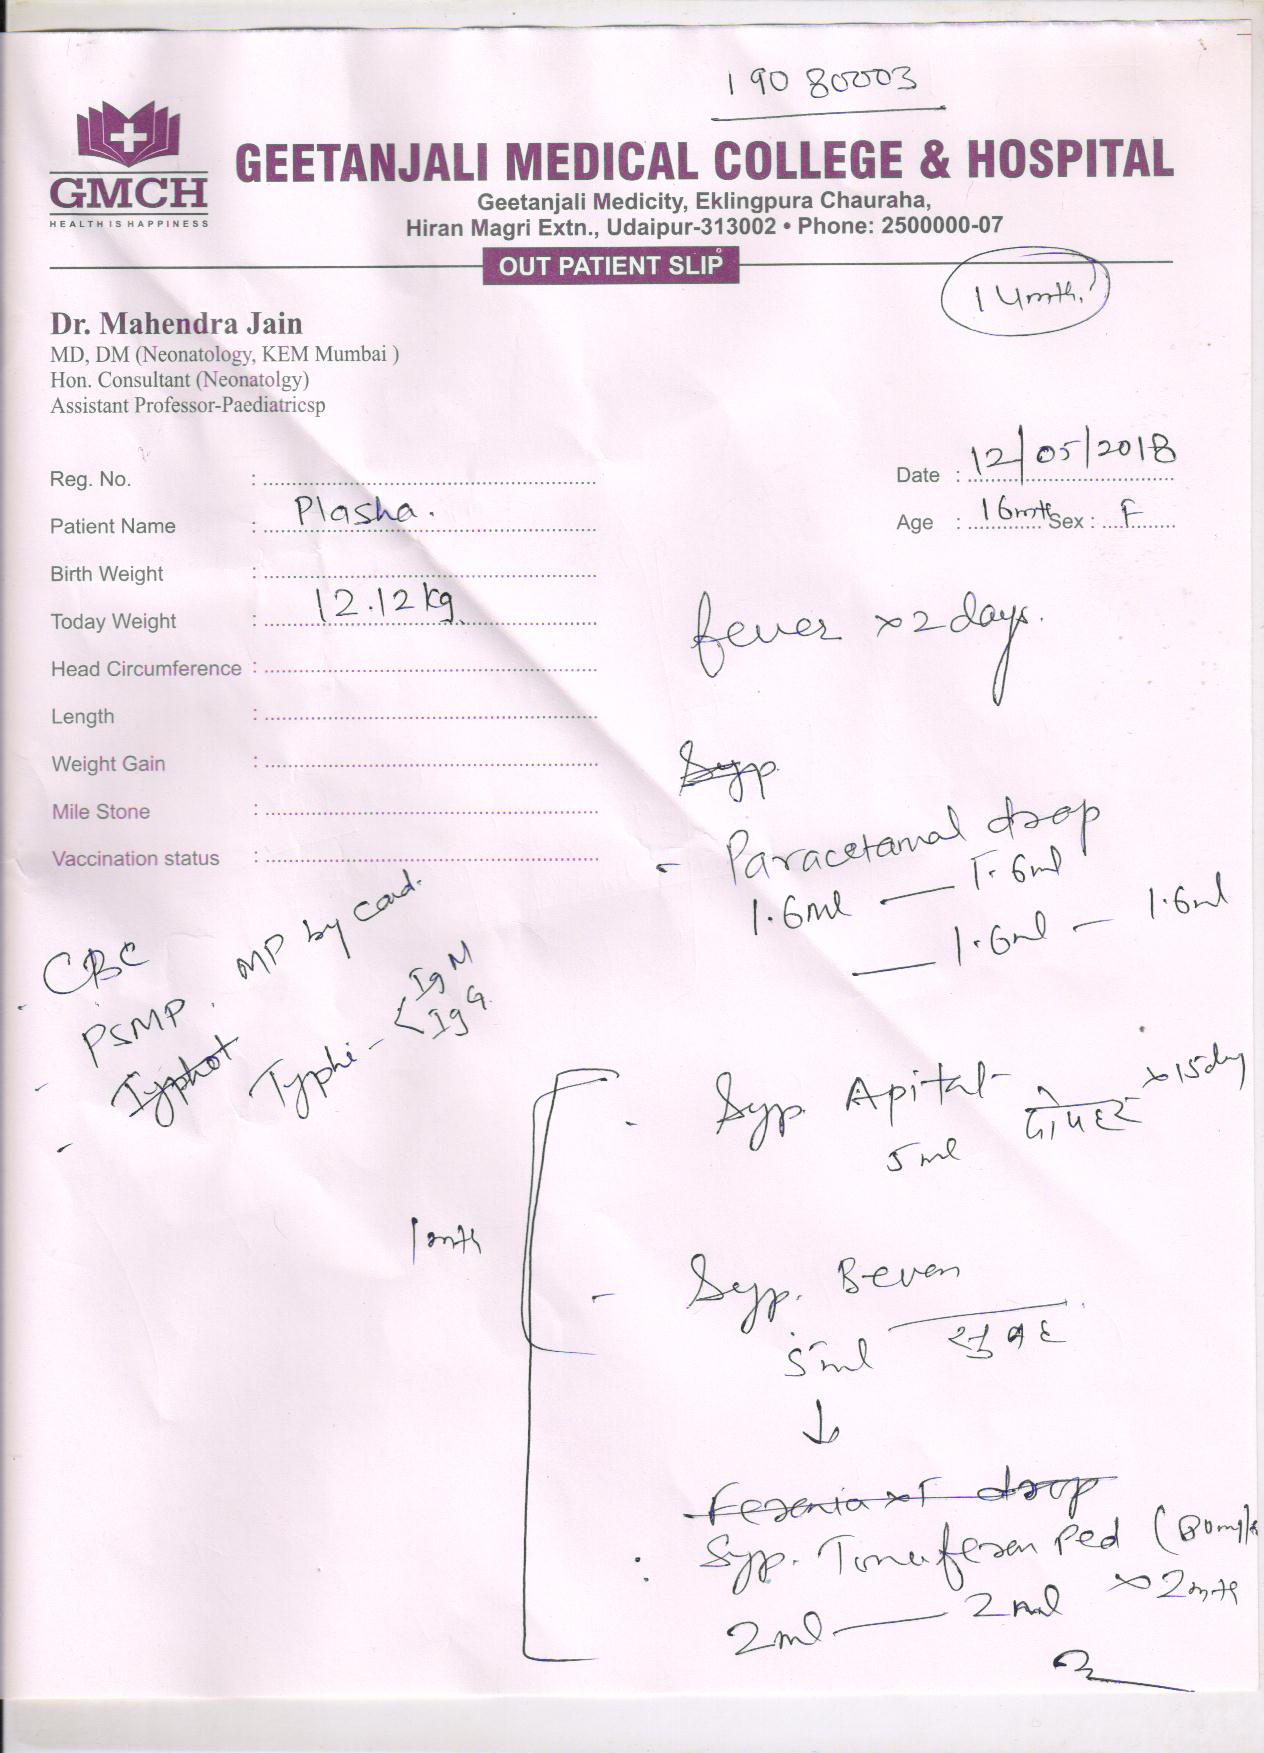 190 80003
GMCH
HEALTH IS HAPPINESS
GEETANJALI MEDICAL COLLEGE & HOSPITAL
Geetanjali Medicity, Eklingpura Chauraha,
Hiran Magri Extn., Udaipur-313002 • Phone: 2500000-07
OUT PATIENT SLIP
Dr. Mahendra Jain
MD, DM (Neonatology, KEM Mumbai )
Hon. Consultant (Neonatolgy)
Assistant Professor-Paediatricsp
Reg. No. :
Date : 12/05/2018
Patient Name : Plasha.
Age : 16mth Sex : F
Birth Weight :
Today Weight : 12.12kg
Head Circumference :
Length :
Weight Gain :
Mile Stone :
Vaccination status :
fever x 2 days.
Syp.
- Paracetamol drop
1.6ml — 1.6ml
— 1.6ml — 1.6ml
- CBC
- PSMP. MP by card.
- Typhot Typhi - < IgM
IgG
- Syp. Apital- दोपहर x 15day
5 ml
1 mth
- Syp. Beven
5ml सुबह
↓
Syp. Tonoferon Ped (80mg/
2ml — 2ml x 2mth